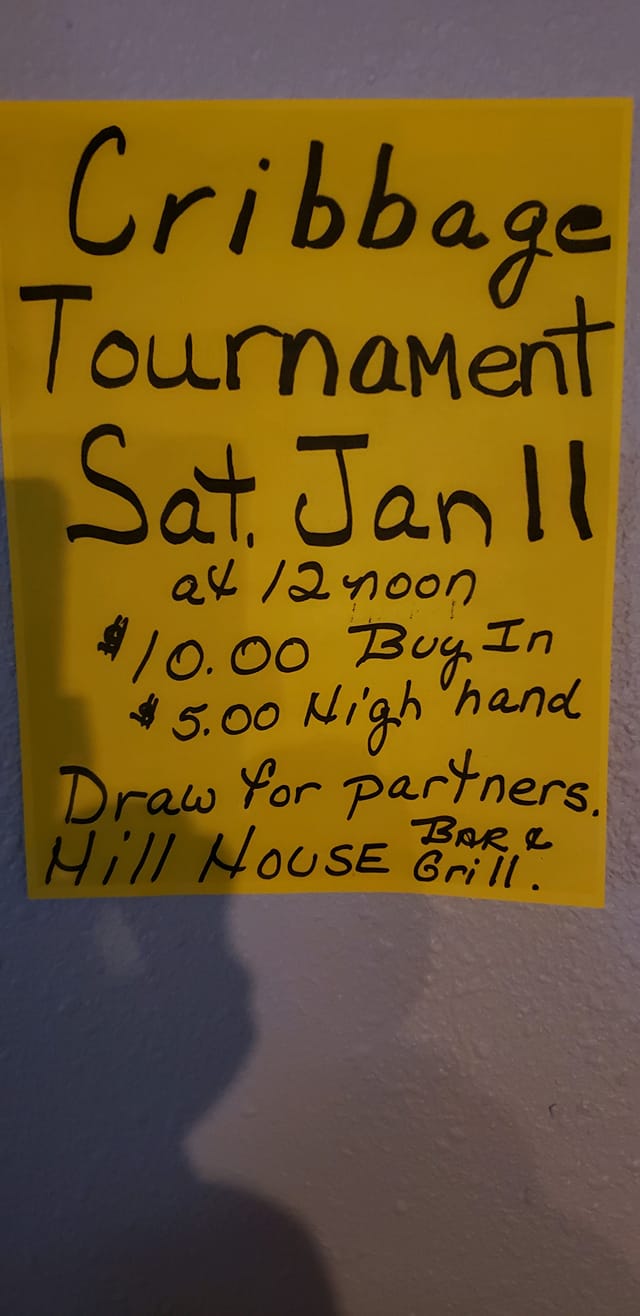 Cribbage
Tournament
Sat. Jan 11
at 12 noon
$10.00 Buy In
$5.00 High hand
Draw for partners.
Hill House Bar &
Grill.